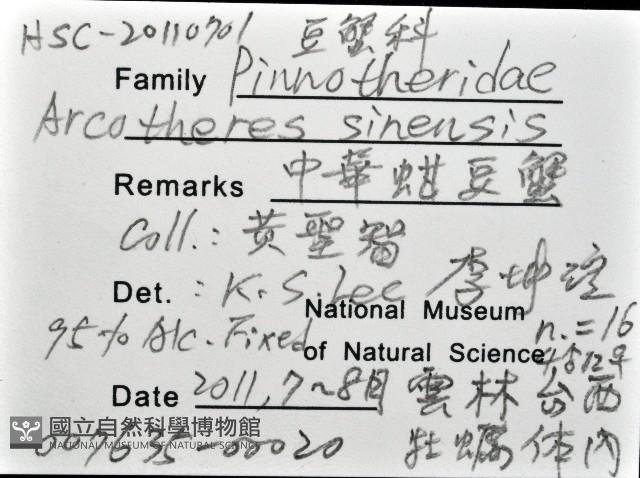 HSC-20110701 豆蟹科
Family Pinnotheridae
Arcotheres sinensis
Remarks 中華蚶豆蟹
Coll.: 黃聖智
Det. : K. S. Lee 李坤瑄
National Museum
95% Alc. Fixed n.=16
of Natural Science
Date 2011, 7~8月 雲林台西
國立自然科學博物館
NATIONAL MUSEUM OF NATURAL SCIENCE
00020 牡蠣体內